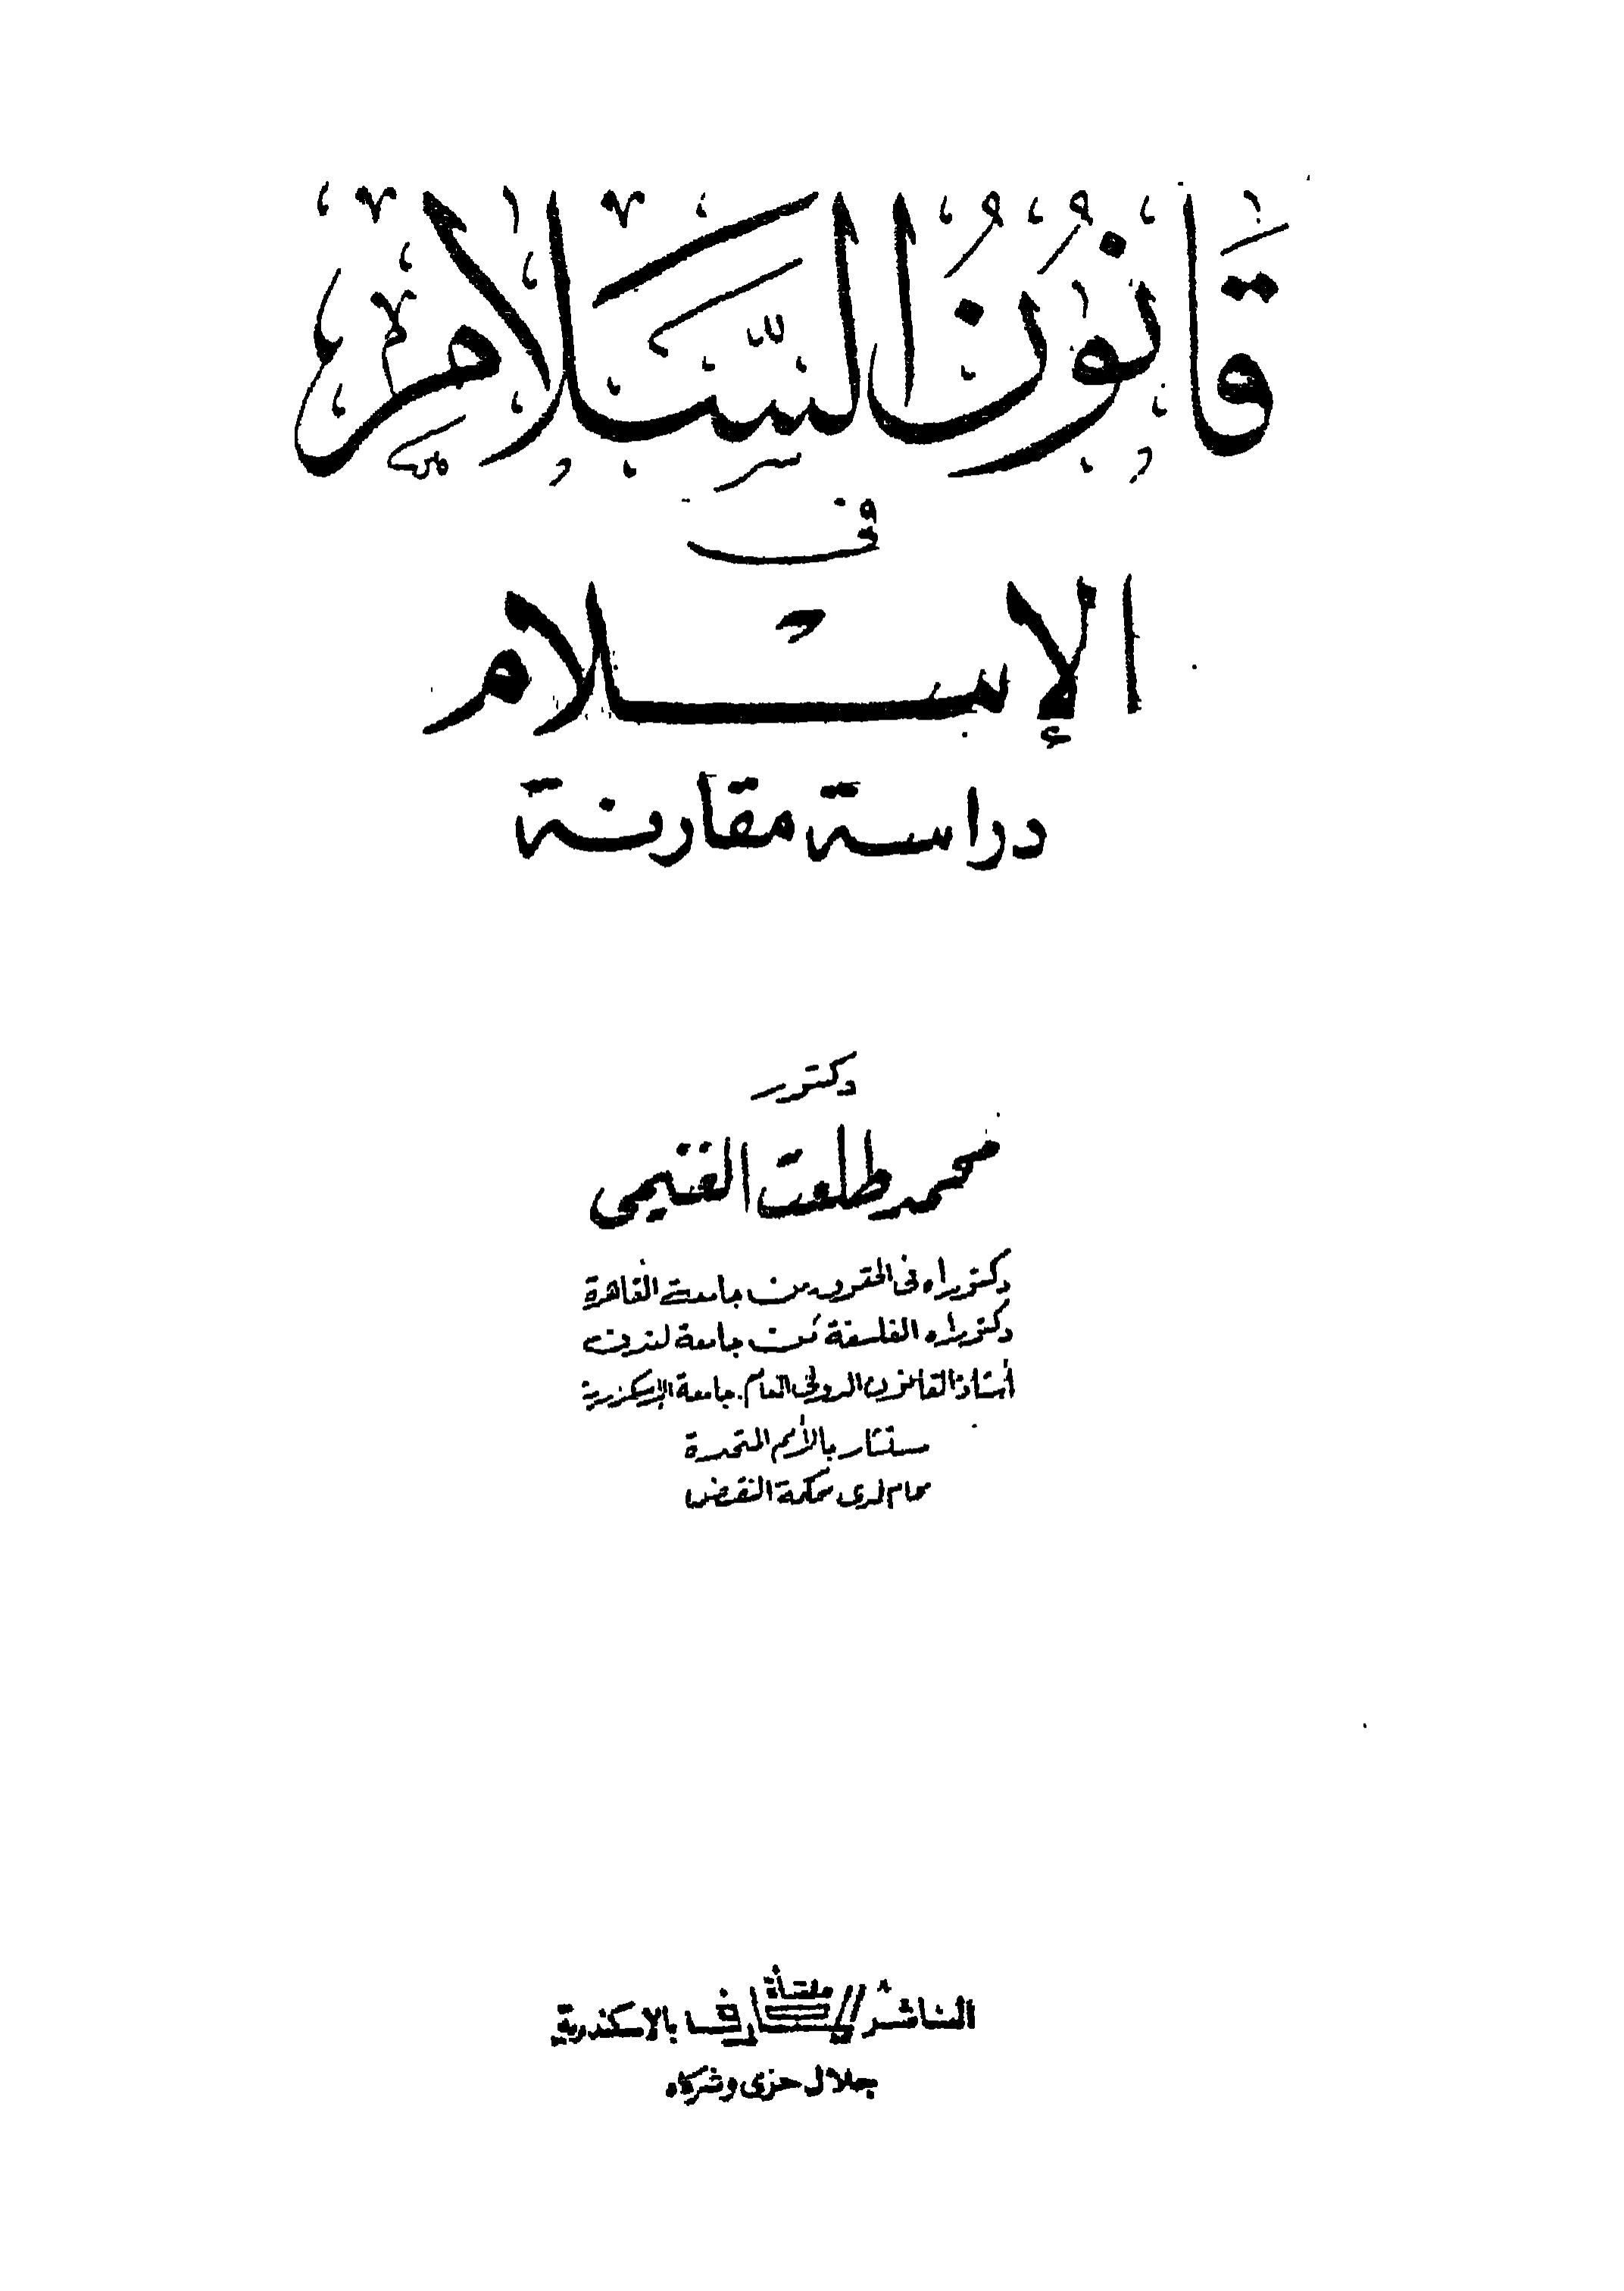 قَانُونُ السَّلَام
فى
الإسلام
دراسة مقارنة
دكتور
محمد طلعت الغنيمى
دكتوراه فى الحقوق من جامعة القاهرة
دكتوراه الفلسفة من جامعة لندن
أستاذ القانون الدولى العام. جامعة الإسكندرية
مستشار بالأمم المتحدة
محام لدى محكمة النقض
الناشر منشأة المعارف بالإسكندرية
جلال حزى وشركاه